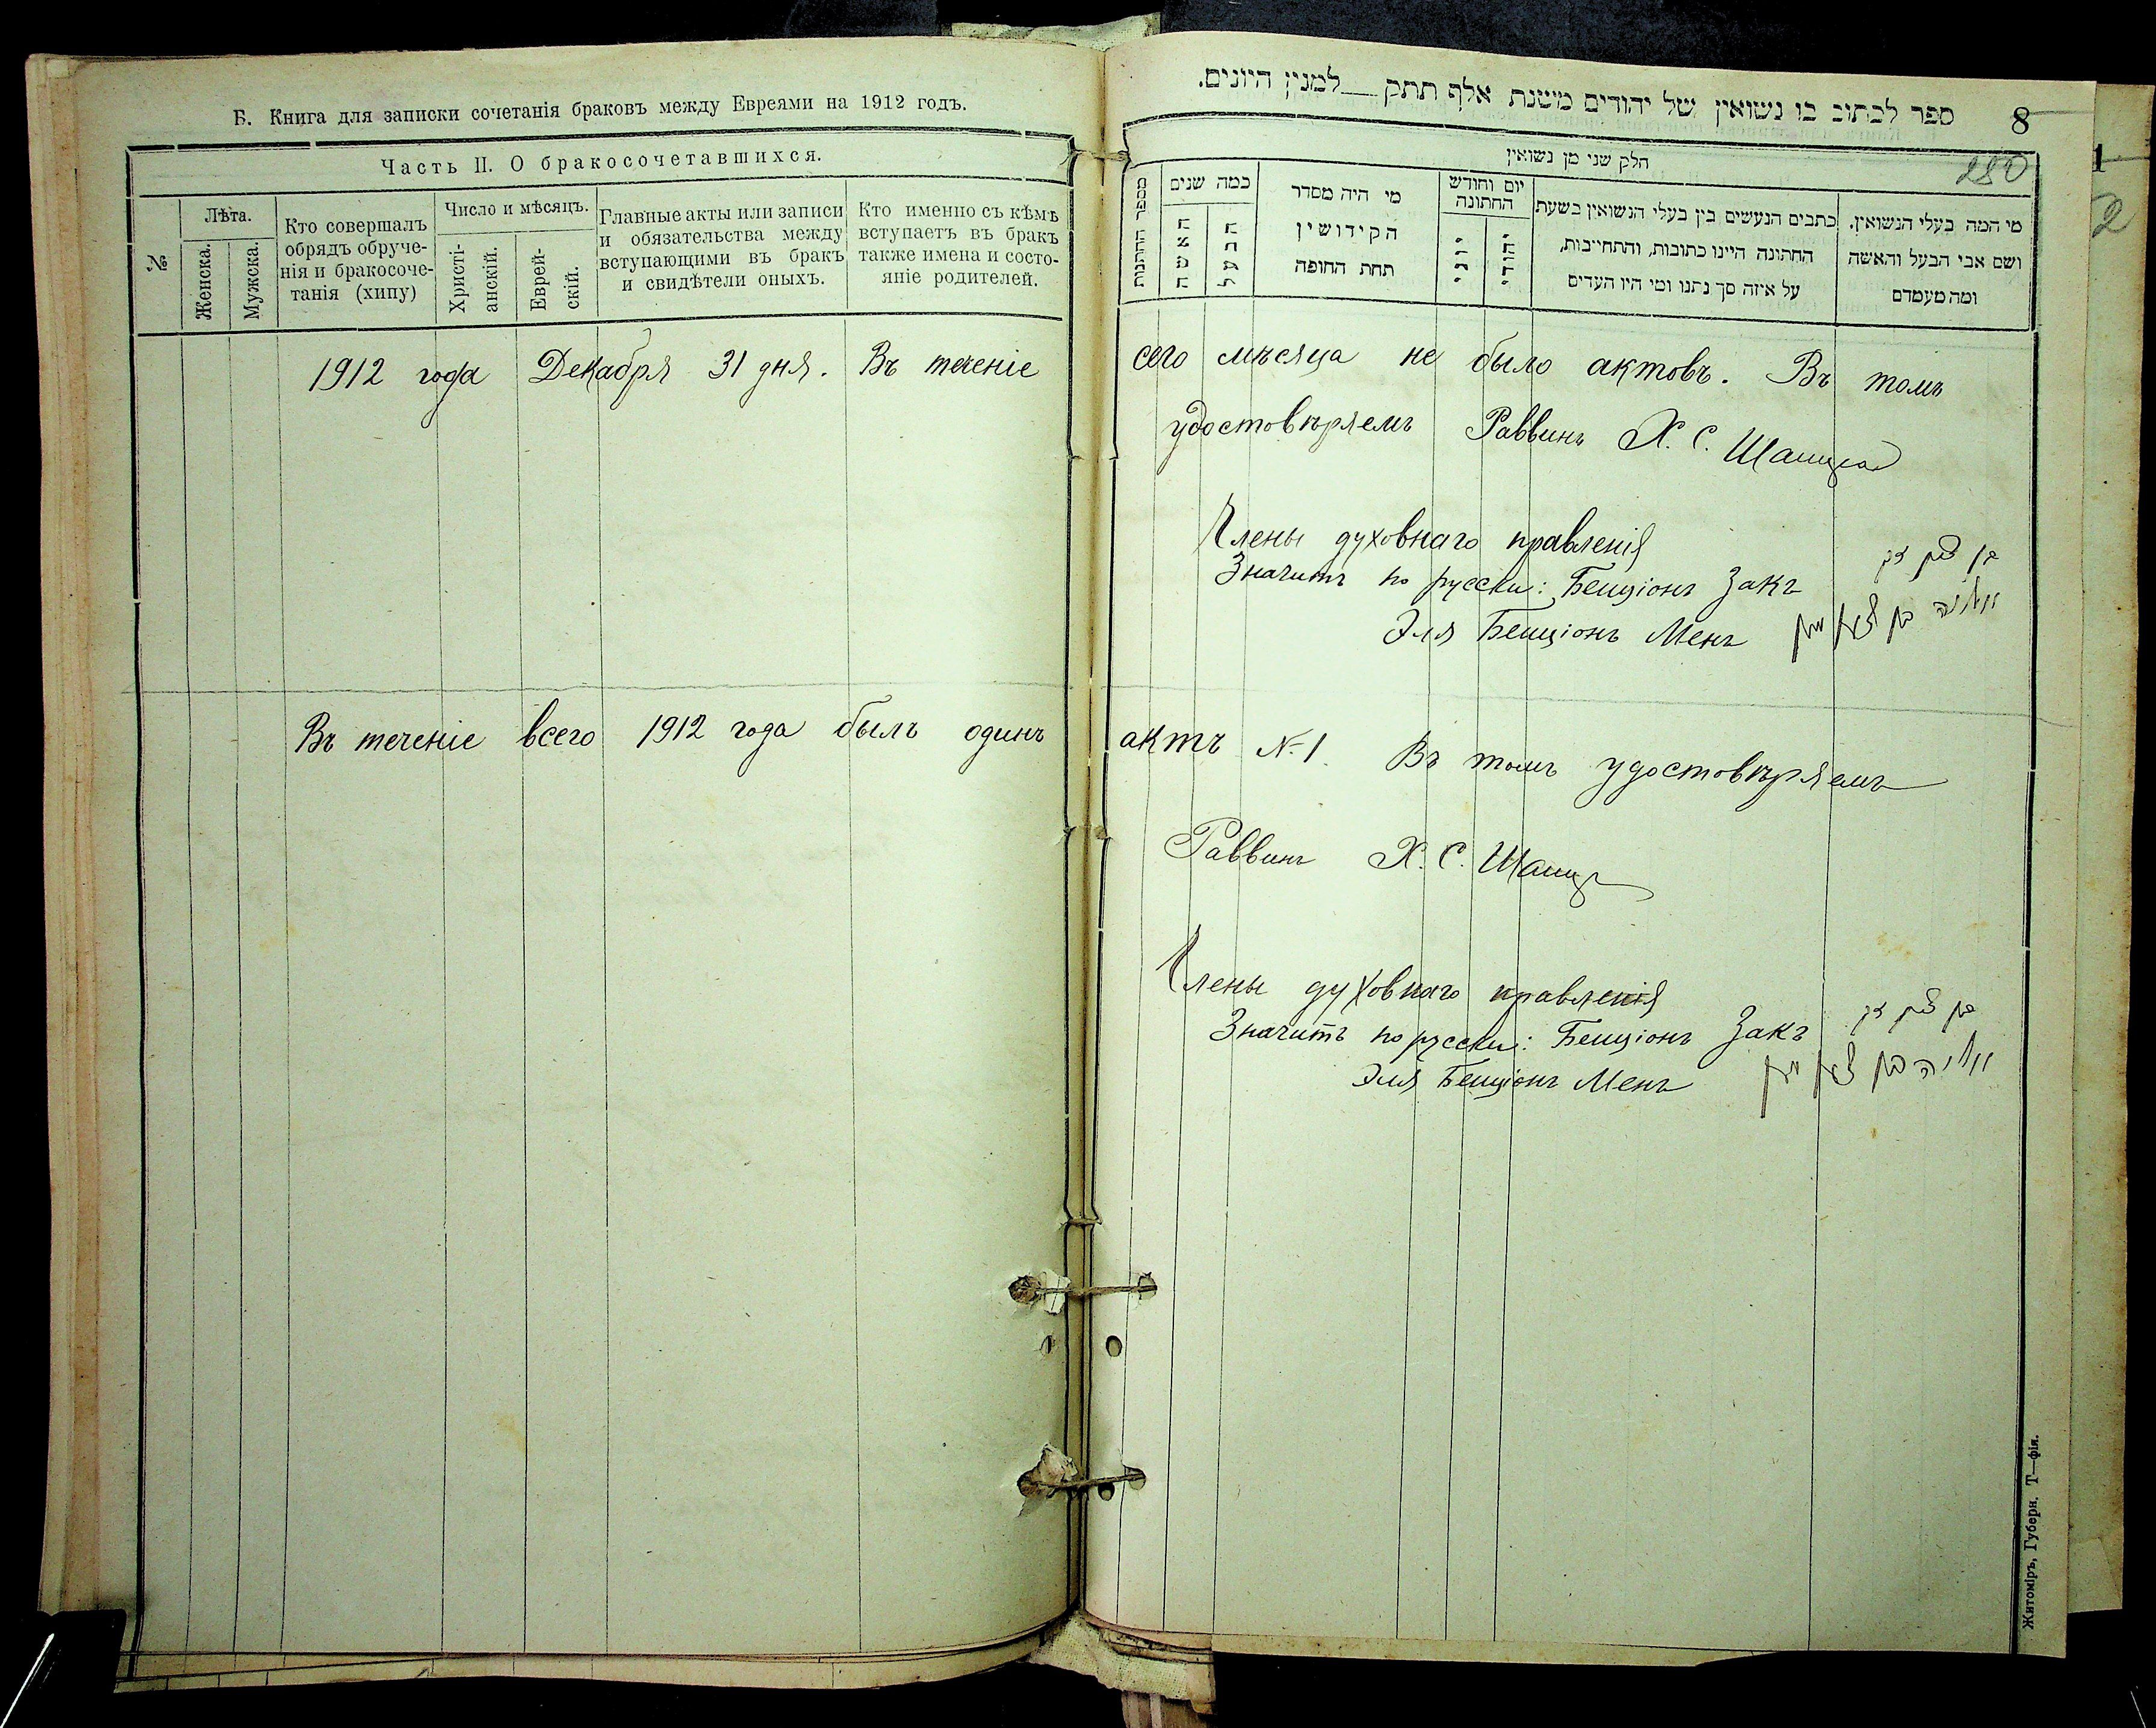 Б. Книга для записки сочетанія браковъ между Евреями на 1912 годъ.
Часть II. О бракосочетавшихся.
№
Лѣта.
Женска.
Мужска.
Кто совершалъ
обрядъ обруче-
нія и бракосоче-
танія (хипу)
Число и мѣсяцъ.
Христі-
анскій.
Еврей-
скій.
Главные акты или записи
и обязательства между
вступающими въ бракъ
и свидѣтели оныхъ.
Кто именно съ кѣмъ
вступаетъ въ бракъ
также имена и состо-
яніе родителей.
ספר לכתוב בו נשואין של יהודים משנת אלף תתק__למנין היונים.
8
280
חלק שני מן נשואין
מספר החתונות
כמה שנים
האשה
הבעל
מי היה מסדר
הקידושין
תחת החופה
יום וחודש
החתונה
יוני
יהודי
כתבים הנעשים בין בעלי הנשואין בשעת
החתונה היינו כתובות, והתחייבות,
על איזה סך נתנו ומי היו העדים
מי המה בעלי הנשואין.
ושם אבי הבעל והאשה
ומה מעמדם
1912 года Декабря 31 дня. Въ теченіе сего мѣсяца не было актовъ. Въ томъ
удостовѣряемъ Раввинъ Х. С.
Члены духовнаго правленія
Значитъ по русски: Бенціонъ Закъ בן ציון זק
Эля Бенціонъ Менъ
Въ теченіе всего 1912 года былъ одинъ актъ №1. Въ томъ удостовѣряемъ
Раввинъ Х. С.
Члены духовнаго правленія
Значитъ по русски: Бенціонъ Закъ בן ציון זק
Эля Бенціонъ Менъ
Житоміръ, Губерн. Т—фія.
1
2